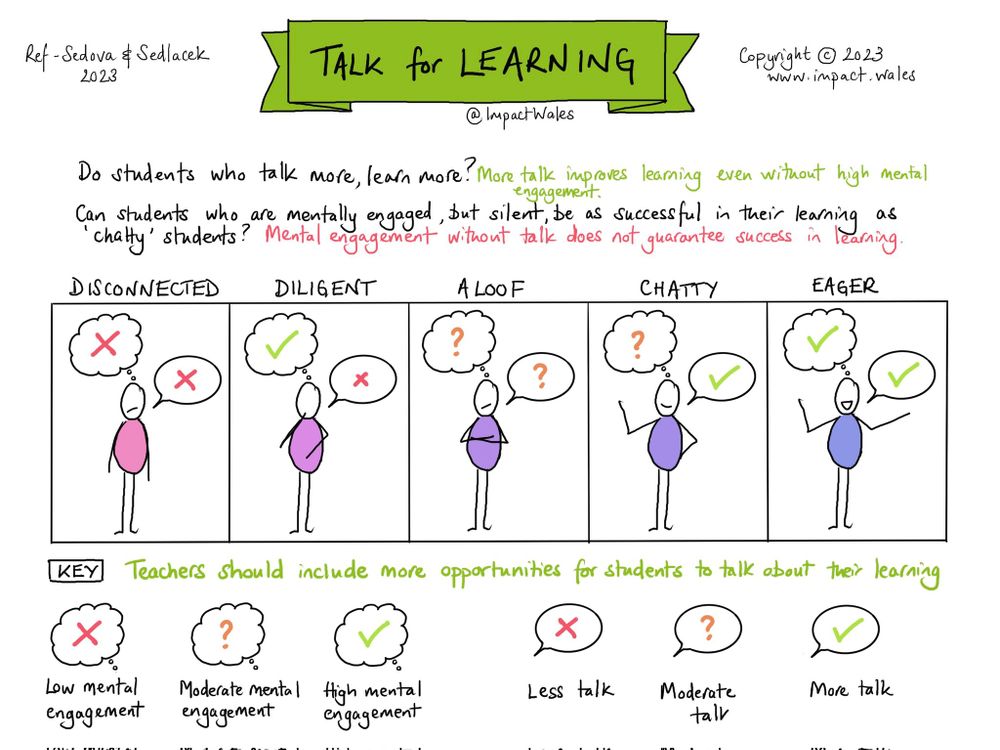 Ref - Sedova & Sedlacek
2023
TALK for LEARNING
Copyright © 2023
www.impact.wales
@ImpactWales
Do students who talk more, learn more? More talk improves learning even without high mental
engagement.
Can students who are mentally engaged, but silent, be as successful in their learning as
'chatty' students? Mental engagement without talk does not guarantee success in learning.
DISCONNECTED DILIGENT ALOOF CHATTY EAGER
? ?
?
KEY Teachers should include more opportunities for students to talk about their learning
? ?
Low mental Moderate mental High mental Less talk Moderate More talk
engagement engagement engagement talk